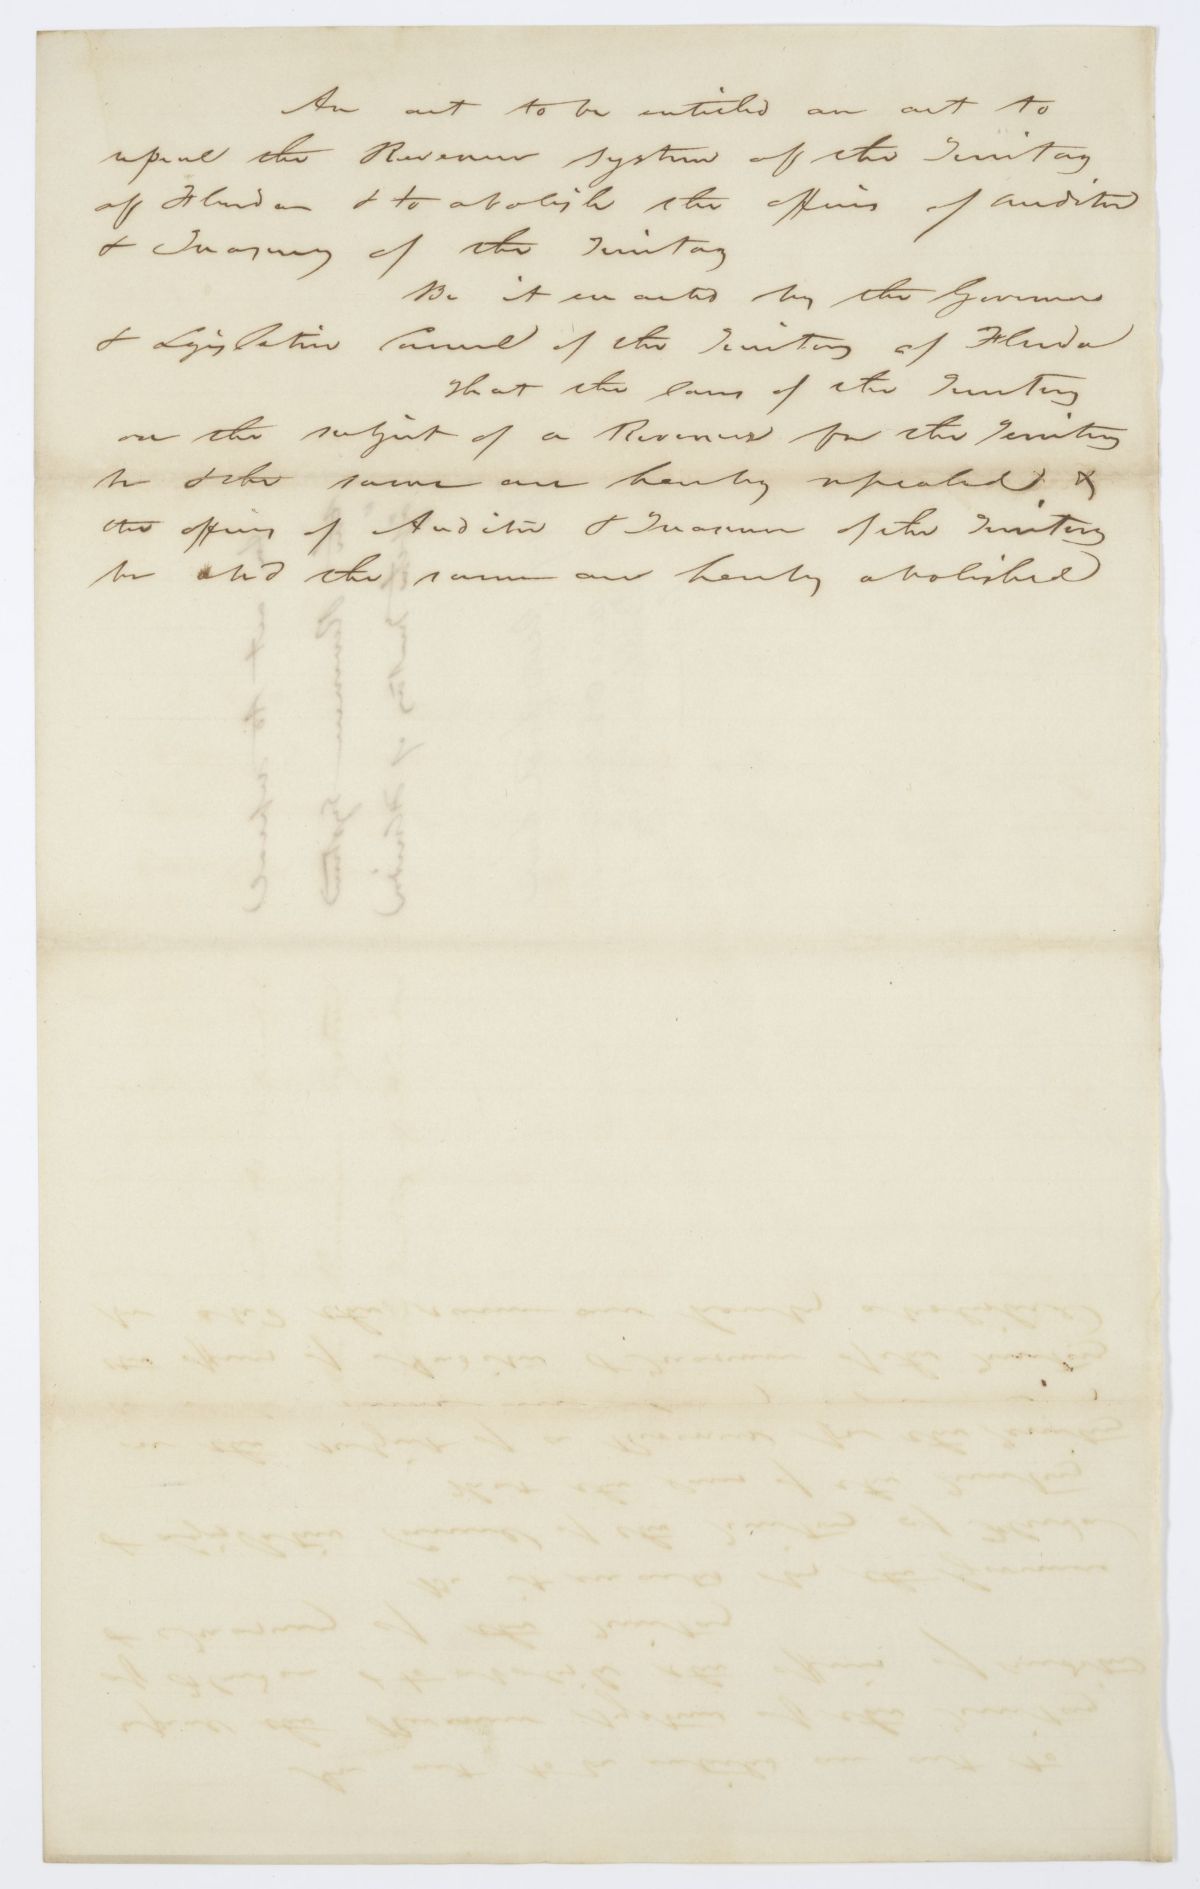 An act to be entitled an act to
repeal the Revenue system off the Territory
off Florida & to abolish the offices of auditor
& Treasury of the Territory
Be it enacted by the Governor
& Legislative Council of the Territory of Florida
That the laws of the Territory
on the subject of a Revenue for the Territory
be & the same are hereby repealed &
the offices of Auditor & Treasurer of the Territory
be and the same are hereby abolished